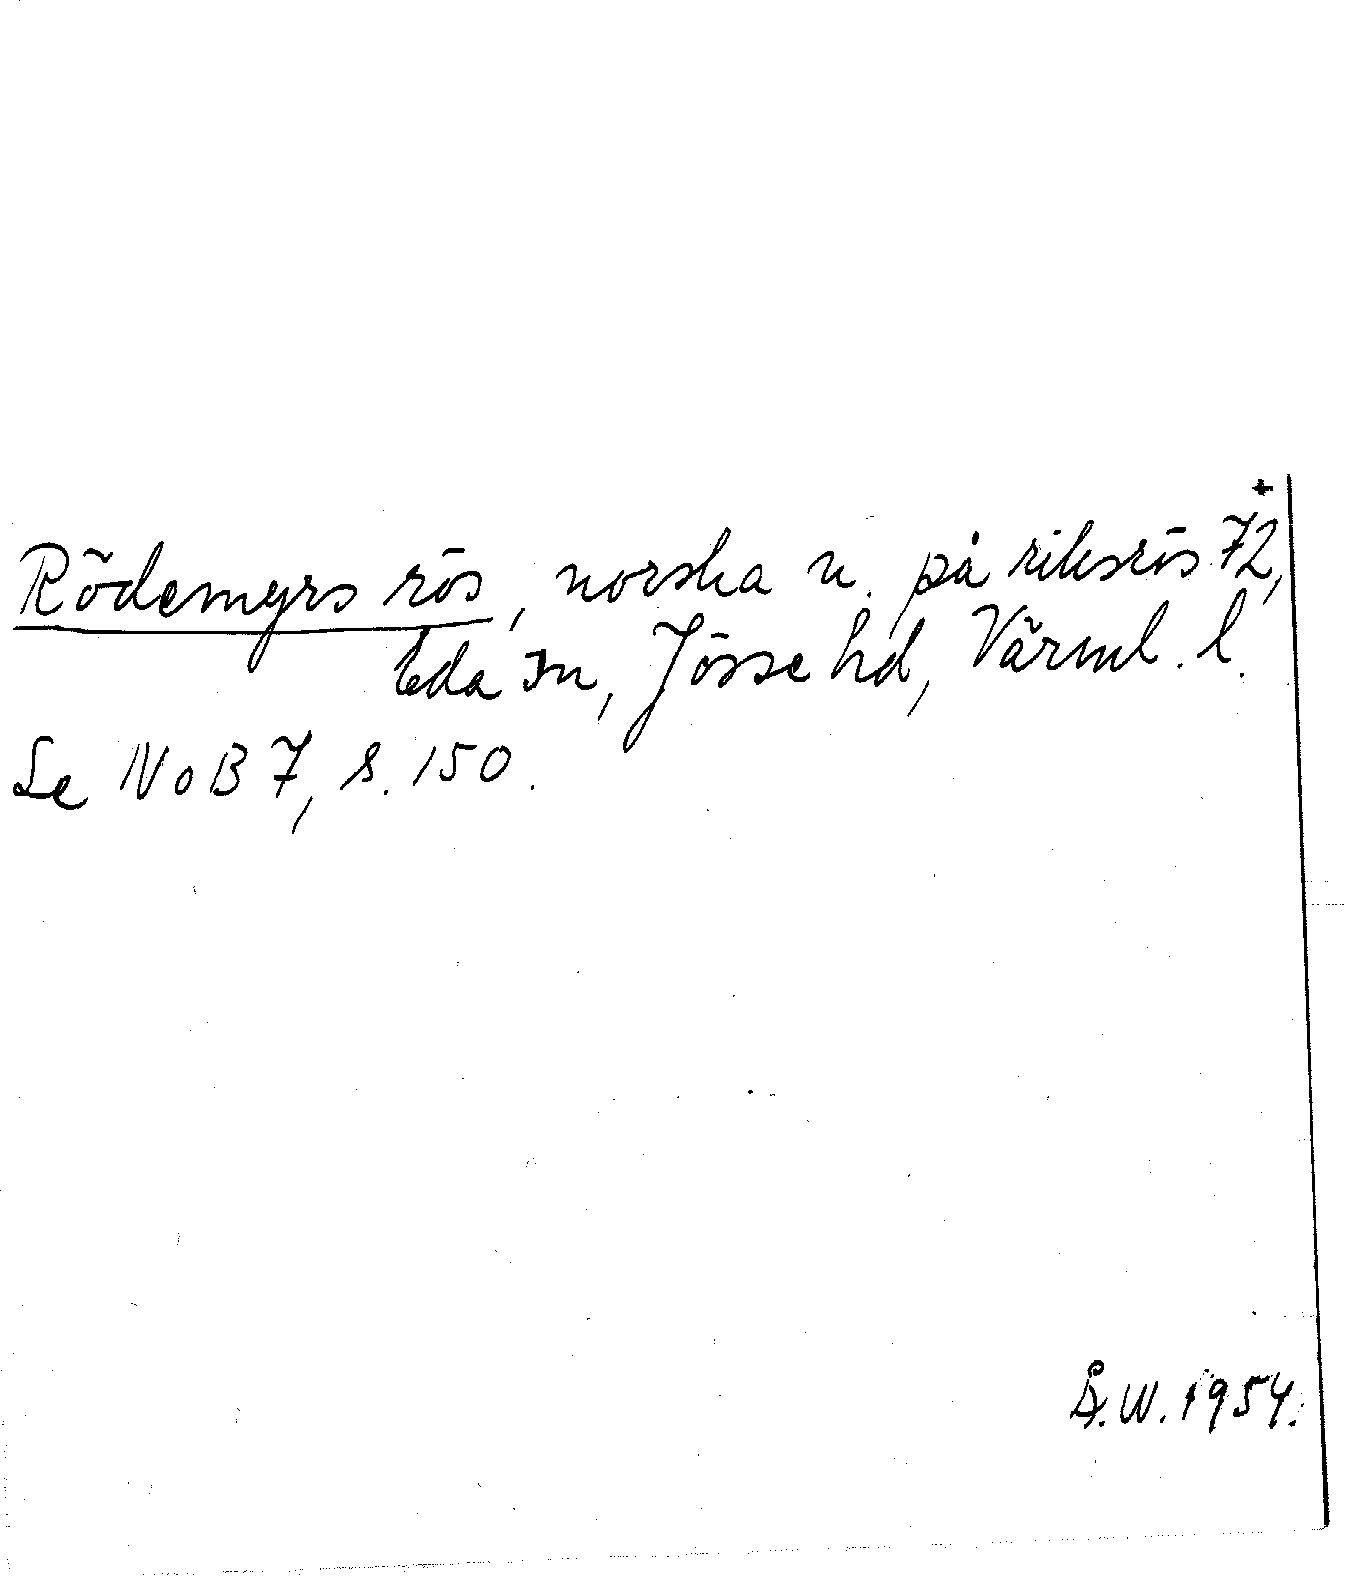 +
Rödemyrs rös, norska n. på riksrös 72,
Eda sn, Jösse hd, Värml. l.
Se NoB 7, s. 150.
Å.W. 1954.